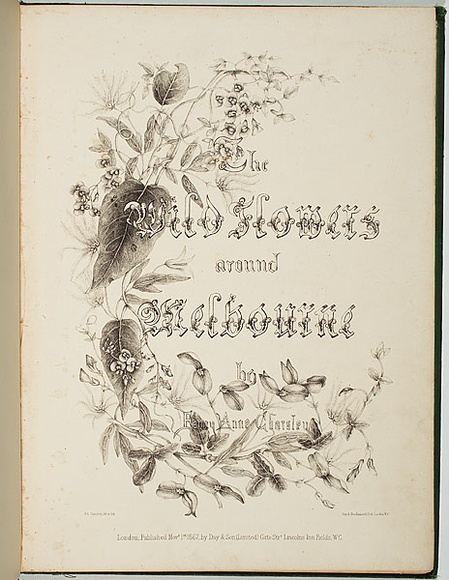 The
Wild Flowers
around
Melbourne
by
Fanny Anne Charsley
London, Published Novr. 1st 1867, by Day & Son (Limited) Gate Strt. Lincolns Inn Fields, W.C.